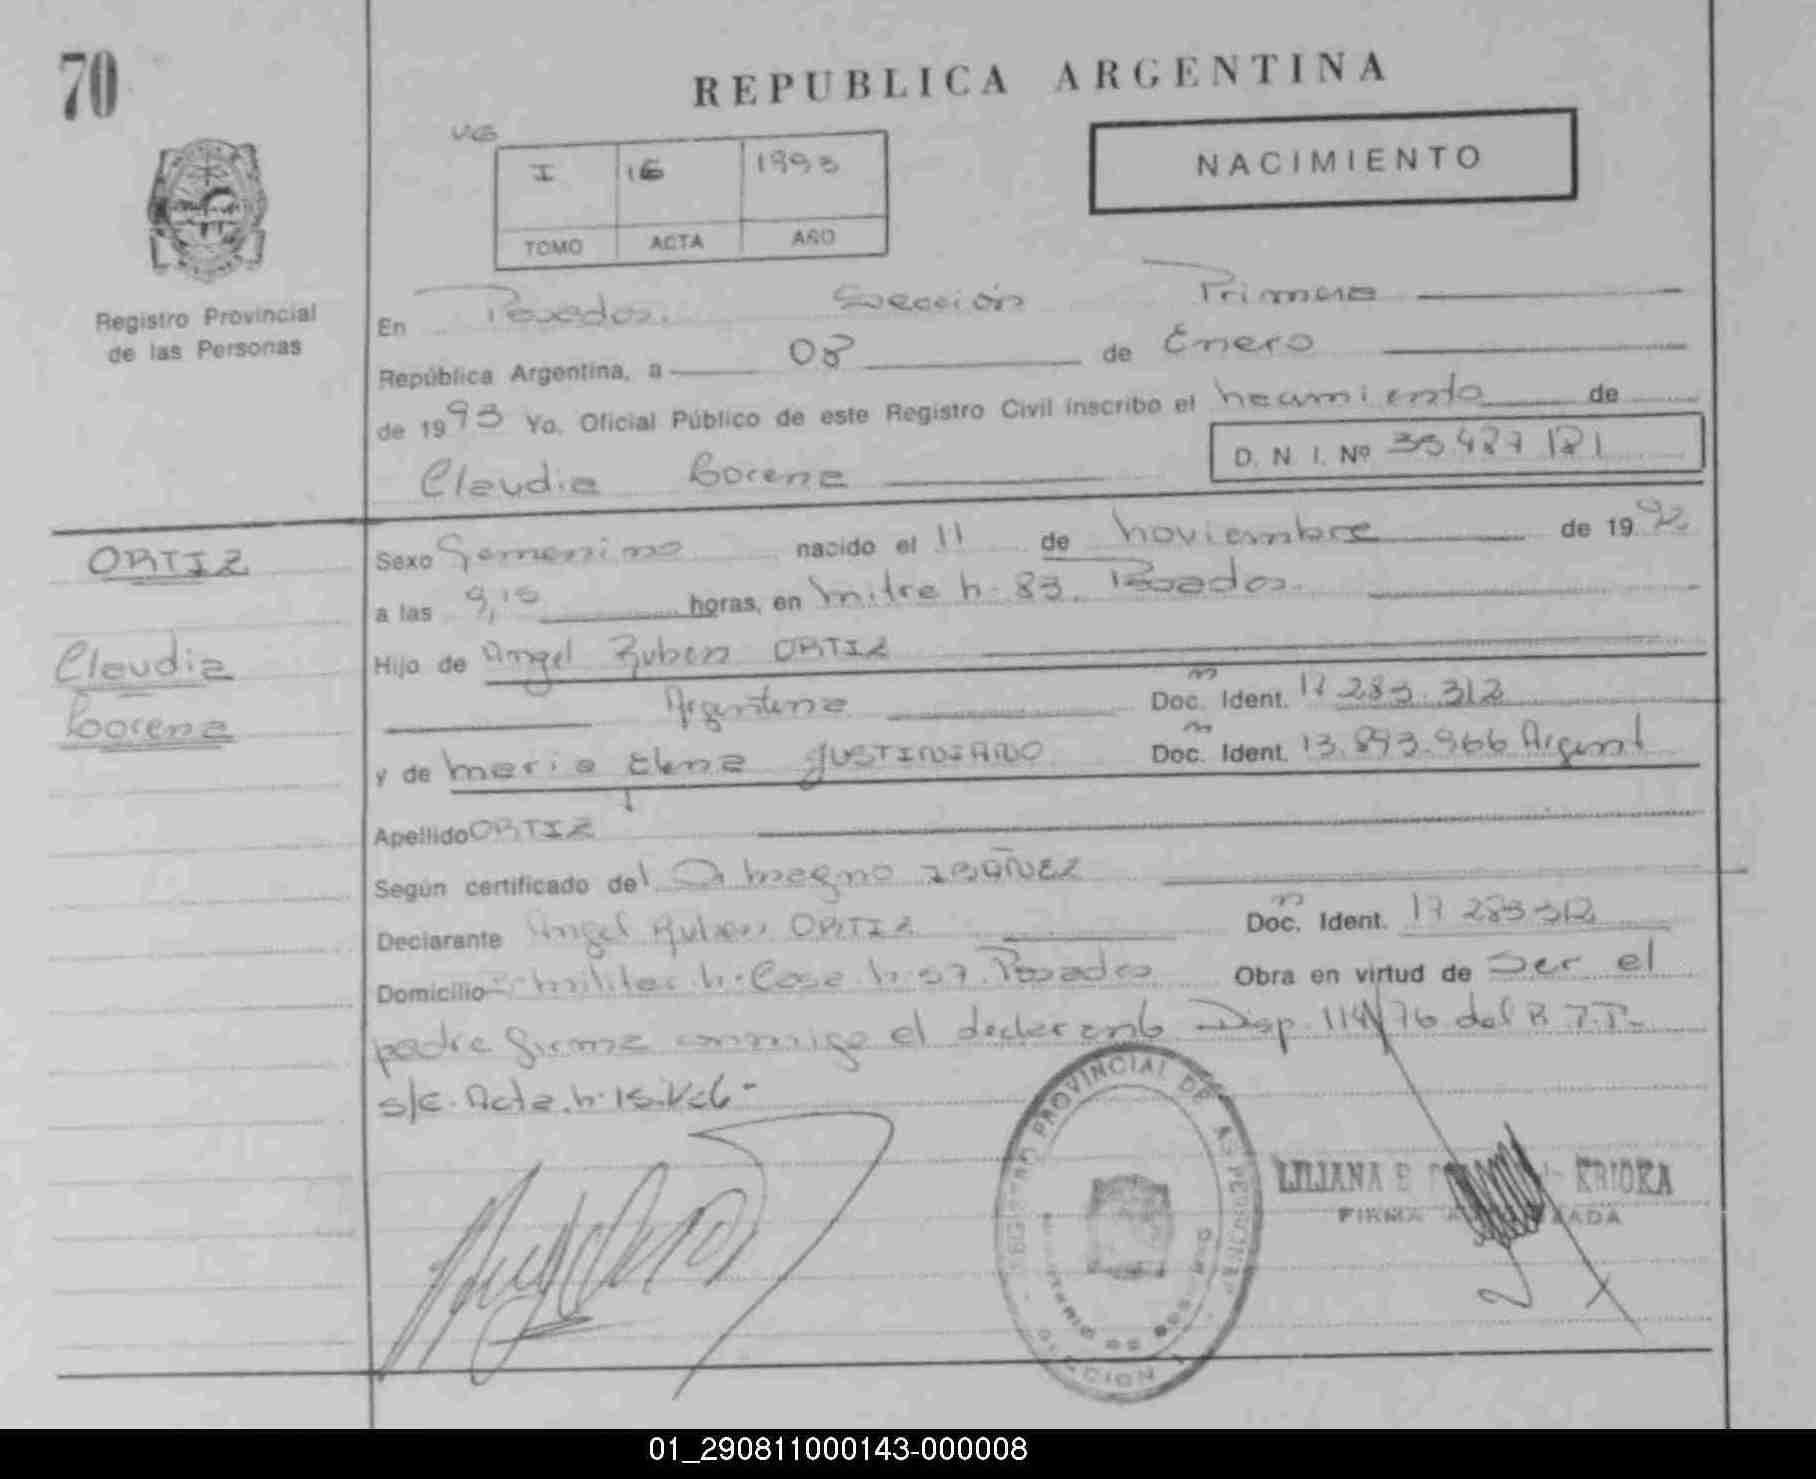 70
REPUBLICA ARGENTINA
NACIMIENTO
I 16 1993
TOMO ACTA AÑO
Registro Provincial
de las Personas
En Posadas. Sección Primera
República Argentina, a 08 de Enero
de 1993 Yo, Oficial Público de este Registro Civil inscribo el nacimiento de
Claudia Lorena D. N. I. Nº
ORTIZ
Claudia
Lorena
Sexo Femenino nacido el 11 de noviembre de 1992
a las 9,15 horas, en Mitre n. 83. Posadas.
Hijo de Angel Ruben ORTIZ
Argentina Doc. Ident. 17 283.312
y de Maria Elena JUSTINIANO Doc. Ident. 13.893.966 Argent
Apellido ORTIZ
Según certificado del Magno IBAÑEZ
Declarante Angel Ruben ORTIZ Doc. Ident. 17 283312
Domicilio Casa Posadas Obra en virtud de Ser el
padre firma conmigo el declarante Disp. 114/76 del R.P.P.
s/c. Acta. n. 15.
REGISTRO PROVINCIAL DE LAS PERSONAS
LILIANA E KRIOKA
FIRMA AUTORIZADA
01_290811000143-000008